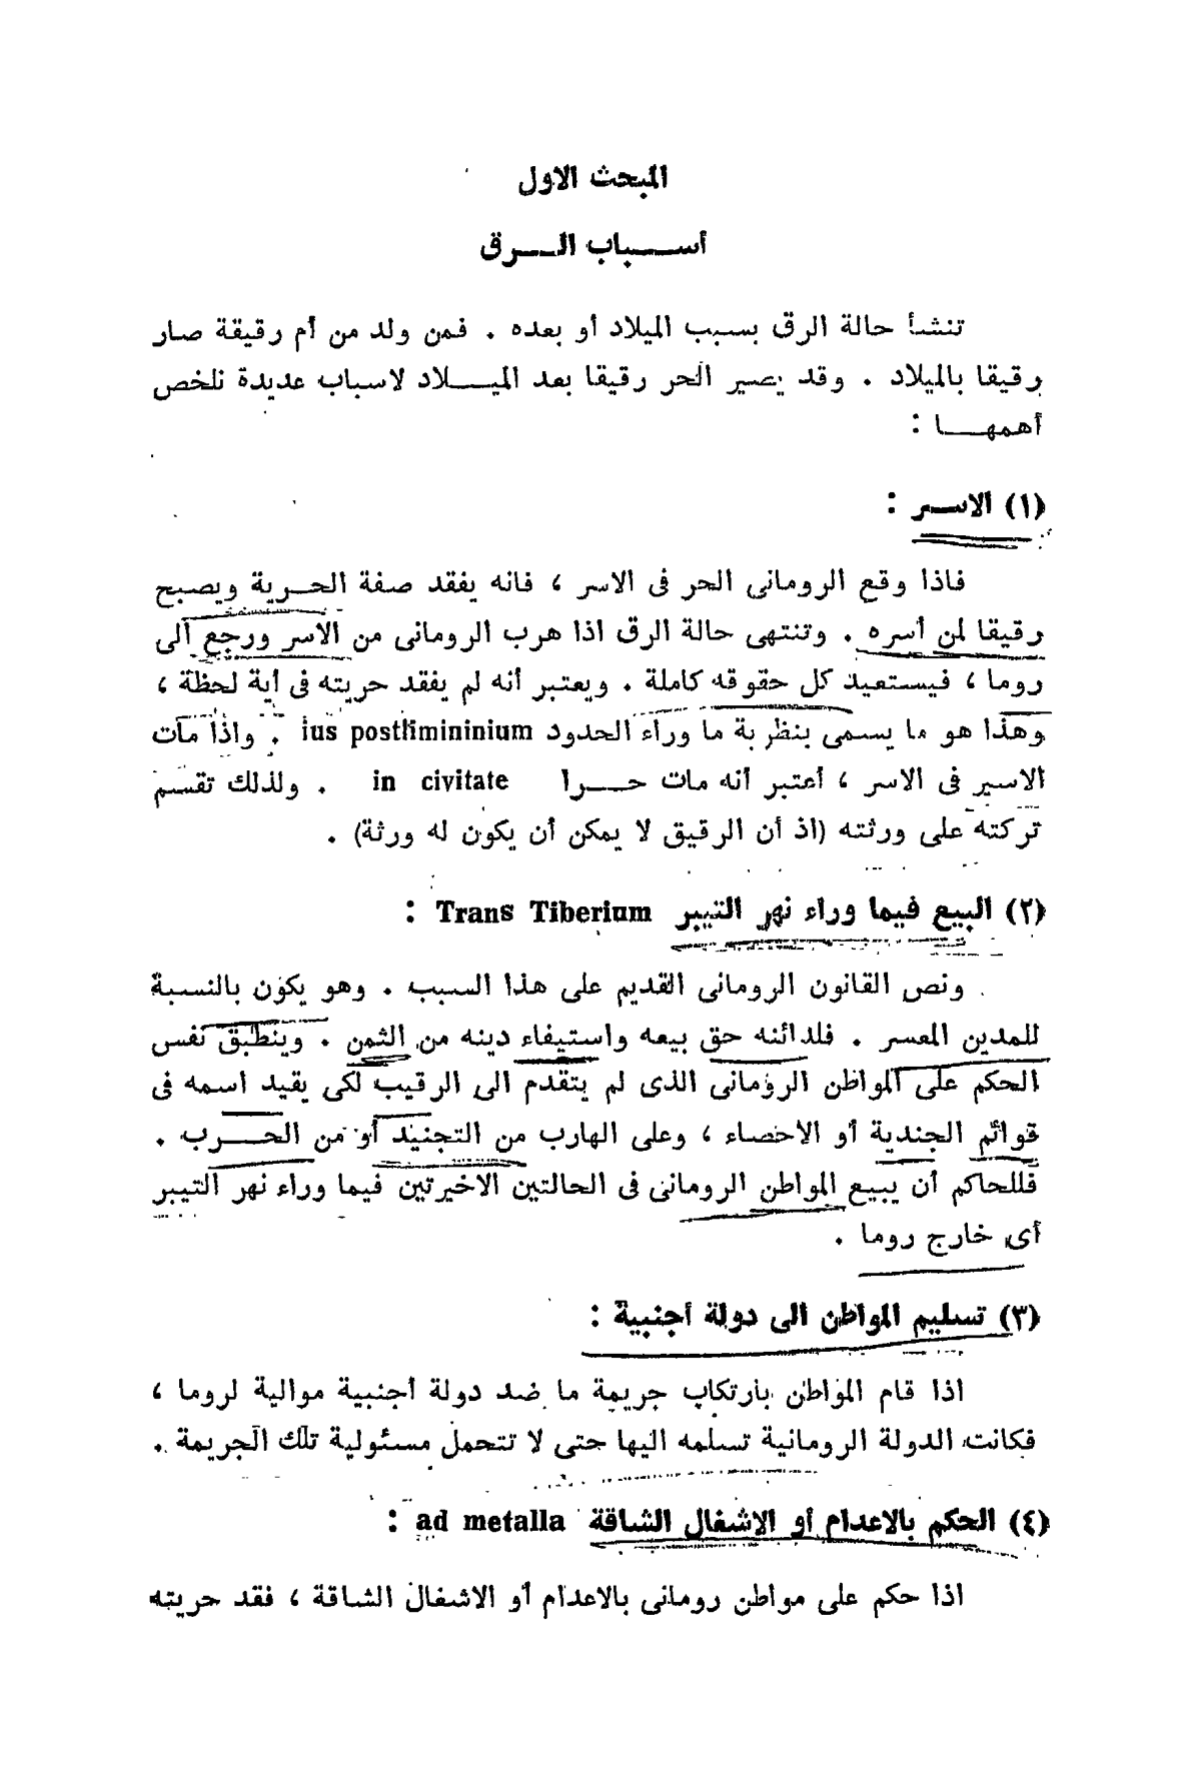 المبحث الاول
أســـباب الـــرق
تنشأ حالة الرق بسبب الميلاد أو بعده . فمن ولد من أم رقيقة صار
رقيقا بالميلاد . وقد يصير الحر رقيقا بعد الميـــلاد لاسباب عديدة نلخص
أهمهـــا :
(١) الاســر :
فاذا وقع الرومانى الحر فى الاسر ، فانه يفقد صفة الحـرية ويصبح
رقيقا لمن أسره . وتنتهى حالة الرق اذا هرب الرومانى من الاسر ورجع الى
روما ، فيستعيد كل حقوقه كاملة . ويعتبر أنه لم يفقد حريته فى أية لحظة ،
وهذا هو ما يسمى بنظرية ما وراء الحدود ius postlimininium . واذا مات
الاسير فى الاسر ، أعتبر أنه مات حـــرا in civitate . ولذلك تقسم
تركته على ورثته (اذ أن الرقيق لا يمكن أن يكون له ورثة) .
(٢) البيع فيما وراء نهر التيبر Trans Tiberium :
ونص القانون الرومانى القديم على هذا السبب . وهو يكون بالنسبة
للمدين المعسر . فلدائنه حق بيعه واستيفاء دينه من الثمن . وينطبق نفس
الحكم على المواطن الرومانى الذى لم يتقدم الى الرقيب لكى يقيد اسمه فى
قوائم الجندية أو الاحصاء ، وعلى الهارب من التجنيد أو من الحـــرب .
فللحاكم أن يبيع المواطن الرومانى فى الحالتين الاخيرتين فيما وراء نهر التيبر
أى خارج روما .
(٣) تسليم المواطن الى دولة أجنبية :
اذا قام المواطن بارتكاب جريمة ما ضد دولة أجنبية موالية لروما ،
فكانت الدولة الرومانية تسلمه اليها حتى لا تتحمل مسئولية تلك الجريمة .
(٤) الحكم بالاعدام أو الاشغال الشاقة ad metalla :
اذا حكم على مواطن رومانى بالاعدام أو الاشغال الشاقة ، فقد حريته